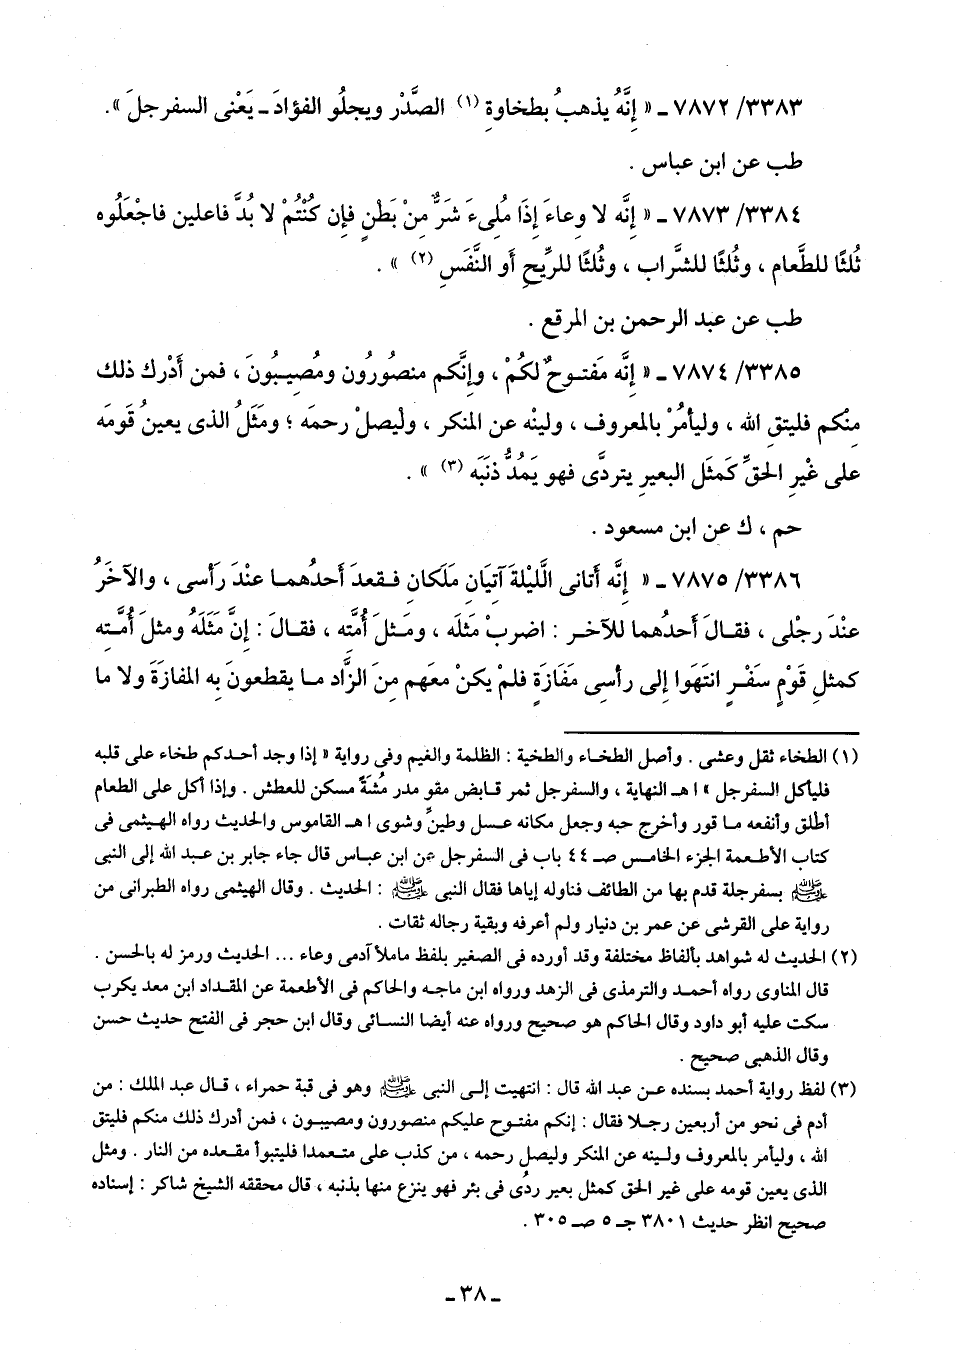 ٣٣٨٣/ ٧٨٧٢ ـ « إِنَّهُ يذهبُ بطخاوةِ (١) الصَّدْر ويجلُو الفؤادَ ـ يَعْنى السفرجلَ » .
طب عن ابن عباس .
٣٣٨٤/ ٧٨٧٣ ـ « إِنَّه لا وِعاءَ إِذَا مُلِىءَ شَرٌّ مِنْ بَطْنٍ فإِن كُنْتُمْ لا بُدَّ فاعلين فاجْعَلُوه
ثُلثًا للطَّعام ، وثُلثًا للشَّراب ، وثُلثًا للرِّيحِ أَو النَّفَسِ (٢) » .
طب عن عبد الرحمن بن المرقع .
٣٣٨٥/ ٧٨٧٤ ـ « إِنَّه مَفتـوحٌ لكُمْ ، وإِنَّكم منصُورُون ومُصيـبُونَ ، فمن أَدْرك ذلك
مِنْكم فليتقِ الله ، وليأمُرْ بالمعروف ، ولينْه عن المنكر ، ولْيصلْ رحمَه ؛ ومثَلُ الذى يعينُ قَومَه
على غَيْرِ الحقِّ كَمثَل البعيرِ يتردَّى فهو يَمُدُّ ذَنَبَه (٣) » .
حم ، ك عن ابن مسعود .
٣٣٨٦/ ٧٨٧٥ ـ « إِنَّه أَتانى اللَّيلةَ آتيَان مَلَكان فـقعدَ أَحدُهمـا عنْدَ رَأْسى ، والآخَرُ
عنْدَ رجْلى ، فقـالَ أَحدُهما للآخـر : اضربْ مَثلَه ، ومَـثلَ أُمَّته ، فقـالَ : إِنَّ مَثَلَهُ ومثلَ أُمَّـته
كمثلِ قَوْمٍ سَفْـرٍ انتَهَوا إِلى رأسِ مَفَازَةٍ فلمْ يكنْ معَهم مِنَ الزَّاد مـا يقطعونَ بِه المفازَةَ ولا ما
(١) الطخاء ثقل وعشى . وأصل الطخـاء والطخية : الظلمة والغيم وفى رواية « إذا وجد أحـدكم طخاء على قلبه
فليأكل السفرجل » ا هـ النهاية ، والسفرجل ثمر قـابض مقو مدر مُشَهٌ مسكن للعطش . وإذا أكل على الطعام
أطلق وأنفعه مـا قور وأخرج حبه وجعل مكانه عـسل وطينٌ وشوى ا هـ القاموس والحديث رواه الهيثمى فى
كتاب الأطـعمة الجزء الخامس صـ ٤٤ باب فى السفرجل عن ابن عبـاس قال جاء جابر بن عـبد الله إلى النبى
ﷺ بسفرجلة قدم بها من الطائف فناوله إياها فقال النبى ﷺ : الحديث . وقال الهيثمى رواه الطبرانى من
رواية على القرشى عن عمر بن دنيار ولم أعرفه وبقية رجاله ثقات .
(٢) الحديث له شواهد بألفاظ مختلفة وقد أورده فى الصغير بلفظ ماملأ آدمى وعاء ... الحديث ورمز له بالحسن .
قال المناوى رواه أحمـد والترمذى فى الزهد ورواه ابن ماجـه والحاكم فى الأطعمة عن المقـداد ابن معد يكرب
سكت عليه أبو داود وقال الحاكم هو صحيح ورواه عنه أيضا النسـائى وقال ابن حجر فى الفتح حديث حسن
وقال الذهبى صحيح .
(٣) لفظ رواية أحمد بسنده عـن عبد الله قال : انتهيت إلـى النبى ﷺ وهو فى قبة حمراء ، قـال عبد الملك : من
أدم فى نحو من أربعين رجـلا فقال : إنكم مفتـوح عليكم منصورون ومصيبـون ، فمن أدرك ذلك منكم فليتق
الله ، وليأمر بالمعروف ولـينه عن المنكر وليصل رحمه ، من كذب على متـعمدا فليتبوأ مقـعده من النار . ومثل
الذى يعين قومه على غير الحق كمثل بعير ردُى فى بئر فهو ينزع منها بذنبه ، قال محققه الشيخ شاكر : إسناده
صحيح انظر حديث ٣٨٠١ جـ ٥ صـ ٣٠٥ .
ـ ٣٨ ـ